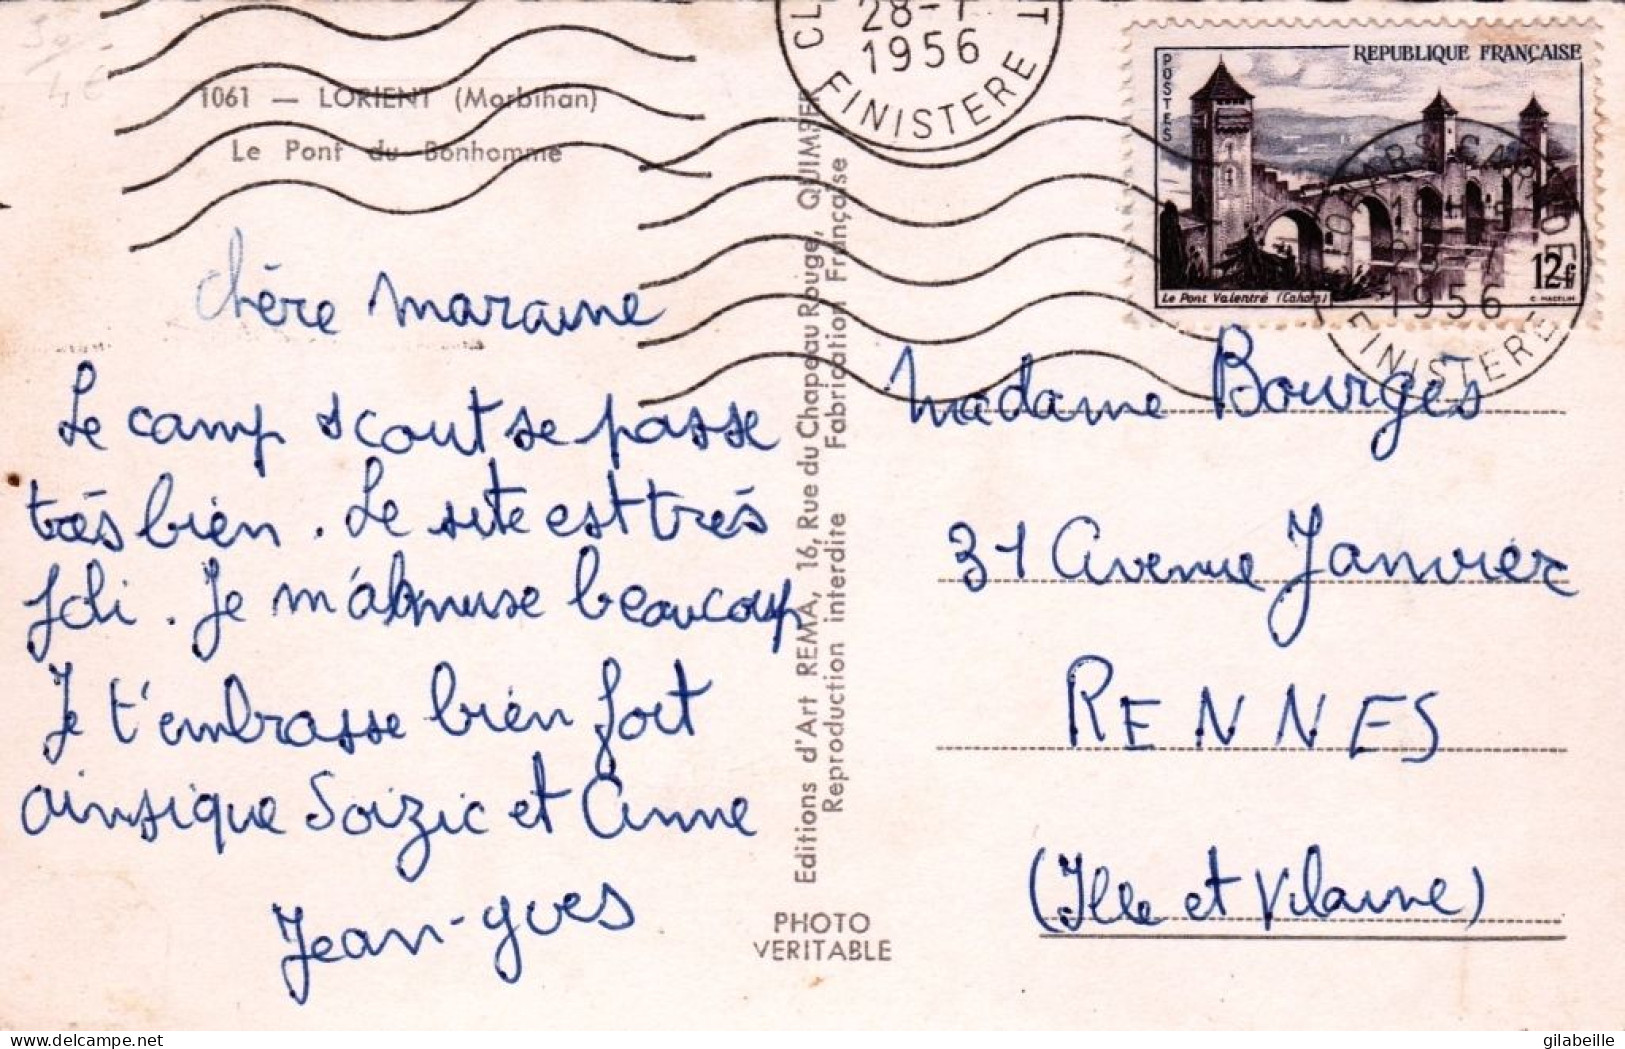 50
4€
1061 — LORIENT (Morbihan)
Le Pont du Bonhomme
28-7
1956
FINISTERE
REPUBLIQUE FRANÇAISE
POSTES
12f
Le Pont Valentré (Cahors)
1956
FINISTERE
chère maraine
Le camp scout se passe
très bien. Le site est très
joli. Je m'abmuse beaucoup
Je t'embrasse bien fort
ainsique Soizic et Anne
Jean-yves
Editions d'Art REMA, 16, Rue du Chapeau Rouge, QUIMPER
Reproduction interdite Fabrication Française
PHOTO
VERITABLE
Madame Bourgès
31 Avenue Janvier
RENNES
(Ille et Vilaine)
gilabeille